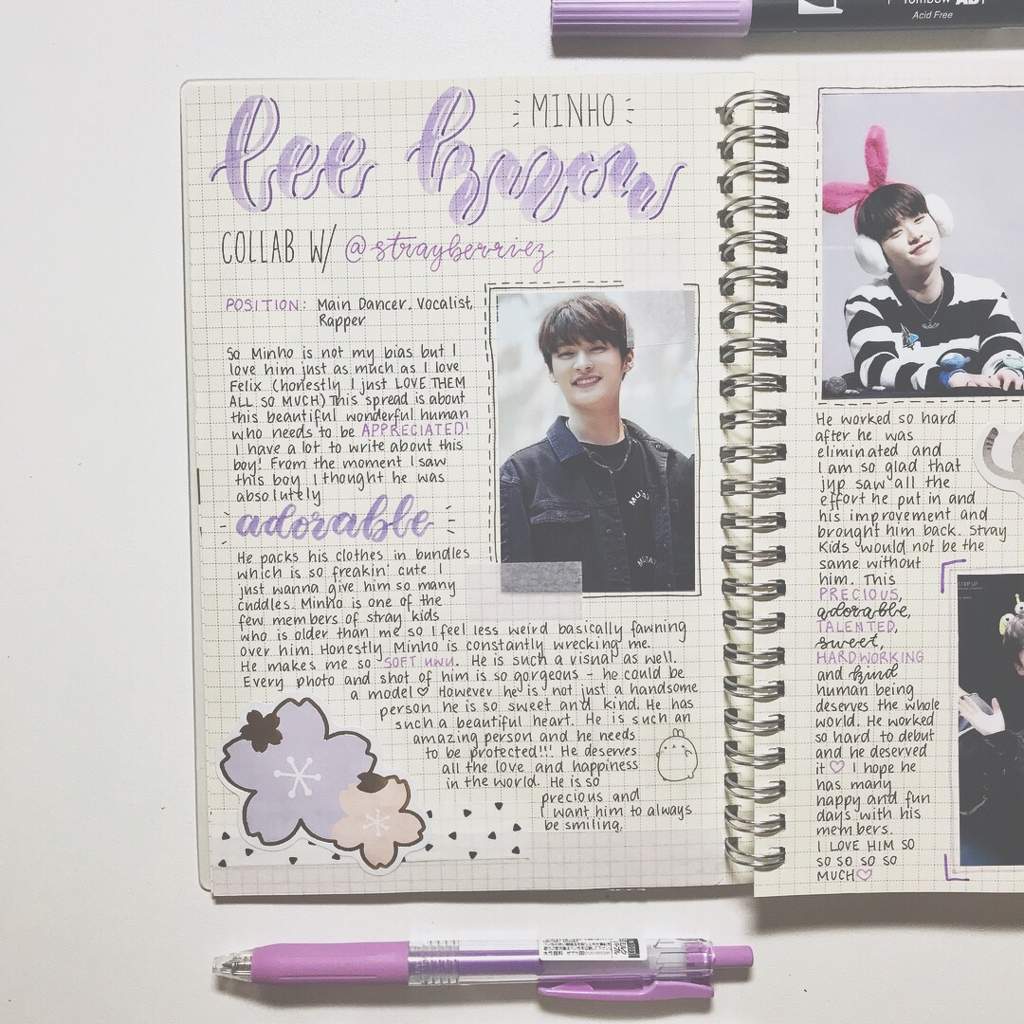 Tombow ABT
Acid Free
MINHO
lee know
COLLAB W/ @strayberriez
POSITION: Main Dancer. Vocalist,
Rapper
So Minho is not my bias but I
love him just as much as I love
Felix (honestly I just LOVE THEM
ALL SO MUCH) This spread is about
this beautiful wonderful human
who needs to be APPRECIATED!
I have a lot to write about this
boy! From the moment I saw
this boy I thought he was
absolutely
adorable
He packs his clothes in bundles
which is so freakin' cute I
just wanna give him so many
cuddles. Minho is one of the
few members of stray kids
who is older than me so I feel less weird basically fawning
over him. Honestly Minho is constantly wrecking me.
He makes me so SOFT UWU. He is such a visual as well.
Every photo and shot of him is so gorgeous - he could be
a model♡ However he is not just a handsome
person he is so sweet and kind. He has
such a beautiful heart. He is such an
amazing person and he needs
to be protected!!! He deserves
all the love and happiness
in the world. He is so
precious and
I want him to always
be smiling.
He worked so hard
after he was
eliminated and
I am so glad that
jyp saw all the
effort he put in and
his improvement and
brought him back. Stray
Kids would not be the
same without
him. This
PRECIOUS,
adorable,
TALENTED,
sweet,
HARDWORKING
and kind
human being
deserves the whole
world. He worked
so hard to debut
and he deserved
it♡ I hope he
has many
happy and fun
days with his
members.
I LOVE HIM SO
SO SO SO SO
MUCH♡